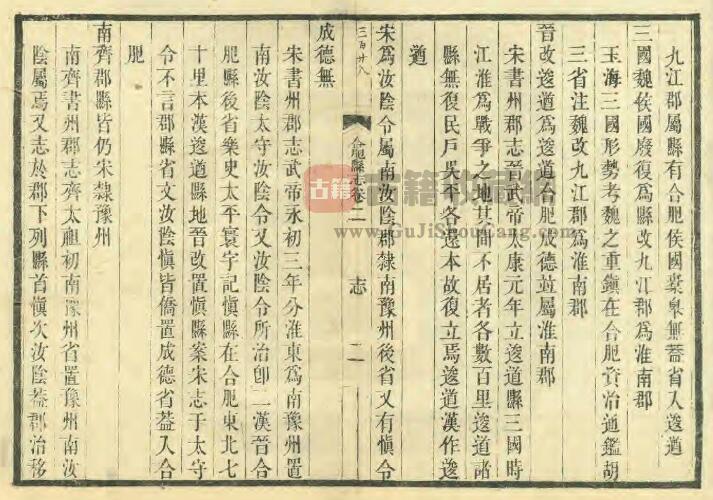 九江郡屬縣有合肥侯國橐臯無葢省入逡遒
三國魏侯國廢復為縣改九江郡為淮南郡
玉海三國形勢考魏之重鎮在合肥資治通鑑胡
三省注魏改九江郡為淮南郡
晉改逡遒為逡道合肥成德並屬淮南郡
宋書州郡志晉武帝太康元年立逡道縣三國時
江淮為戰爭之地其間不居者各數百里逡道諸
縣無復民戶吳平各還本故復立焉逡道漢作逡
遒
宋為汝陰令屬南汝陰郡隸南豫州後省又有愼令
三百廿八
合肥縣志卷二
志
二
成德無
宋書州郡志武帝永初三年分淮東為南豫州置
南汝陰太守汝陰令又汝陰令所治卽二漢晉合
肥縣後省樂史太平寰宇記愼縣在合肥東北七
十里本漢逡遒縣地晉改置愼縣案宋志于太守
令不言郡縣省文汝陰愼皆僑置成德省葢入合
肥
南齊郡縣皆仍宋隸豫州
南齊書州郡志齊太祖初南豫州省置豫州南汝
陰屬焉又志於郡下列縣首愼次汝陰葢郡治移
古籍
古籍收藏网
www.GuJiShouCang.com